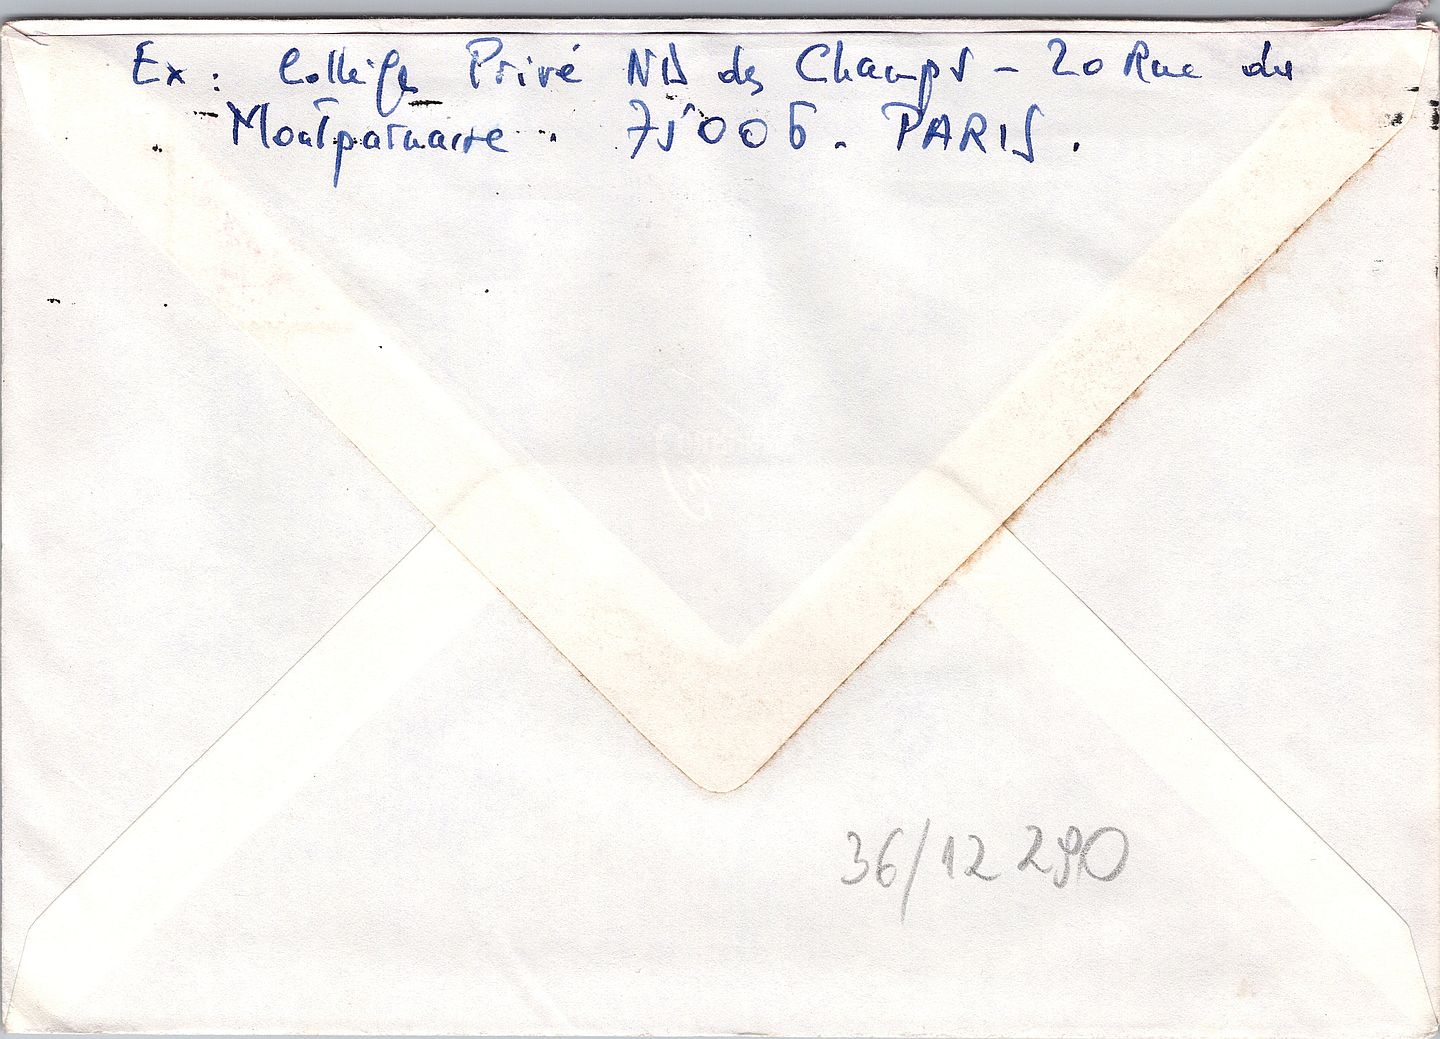 Ex : Collège Privé ND des Champs - 20 Rue du
Montparnasse . 75006 . PARIS .
36/12 290